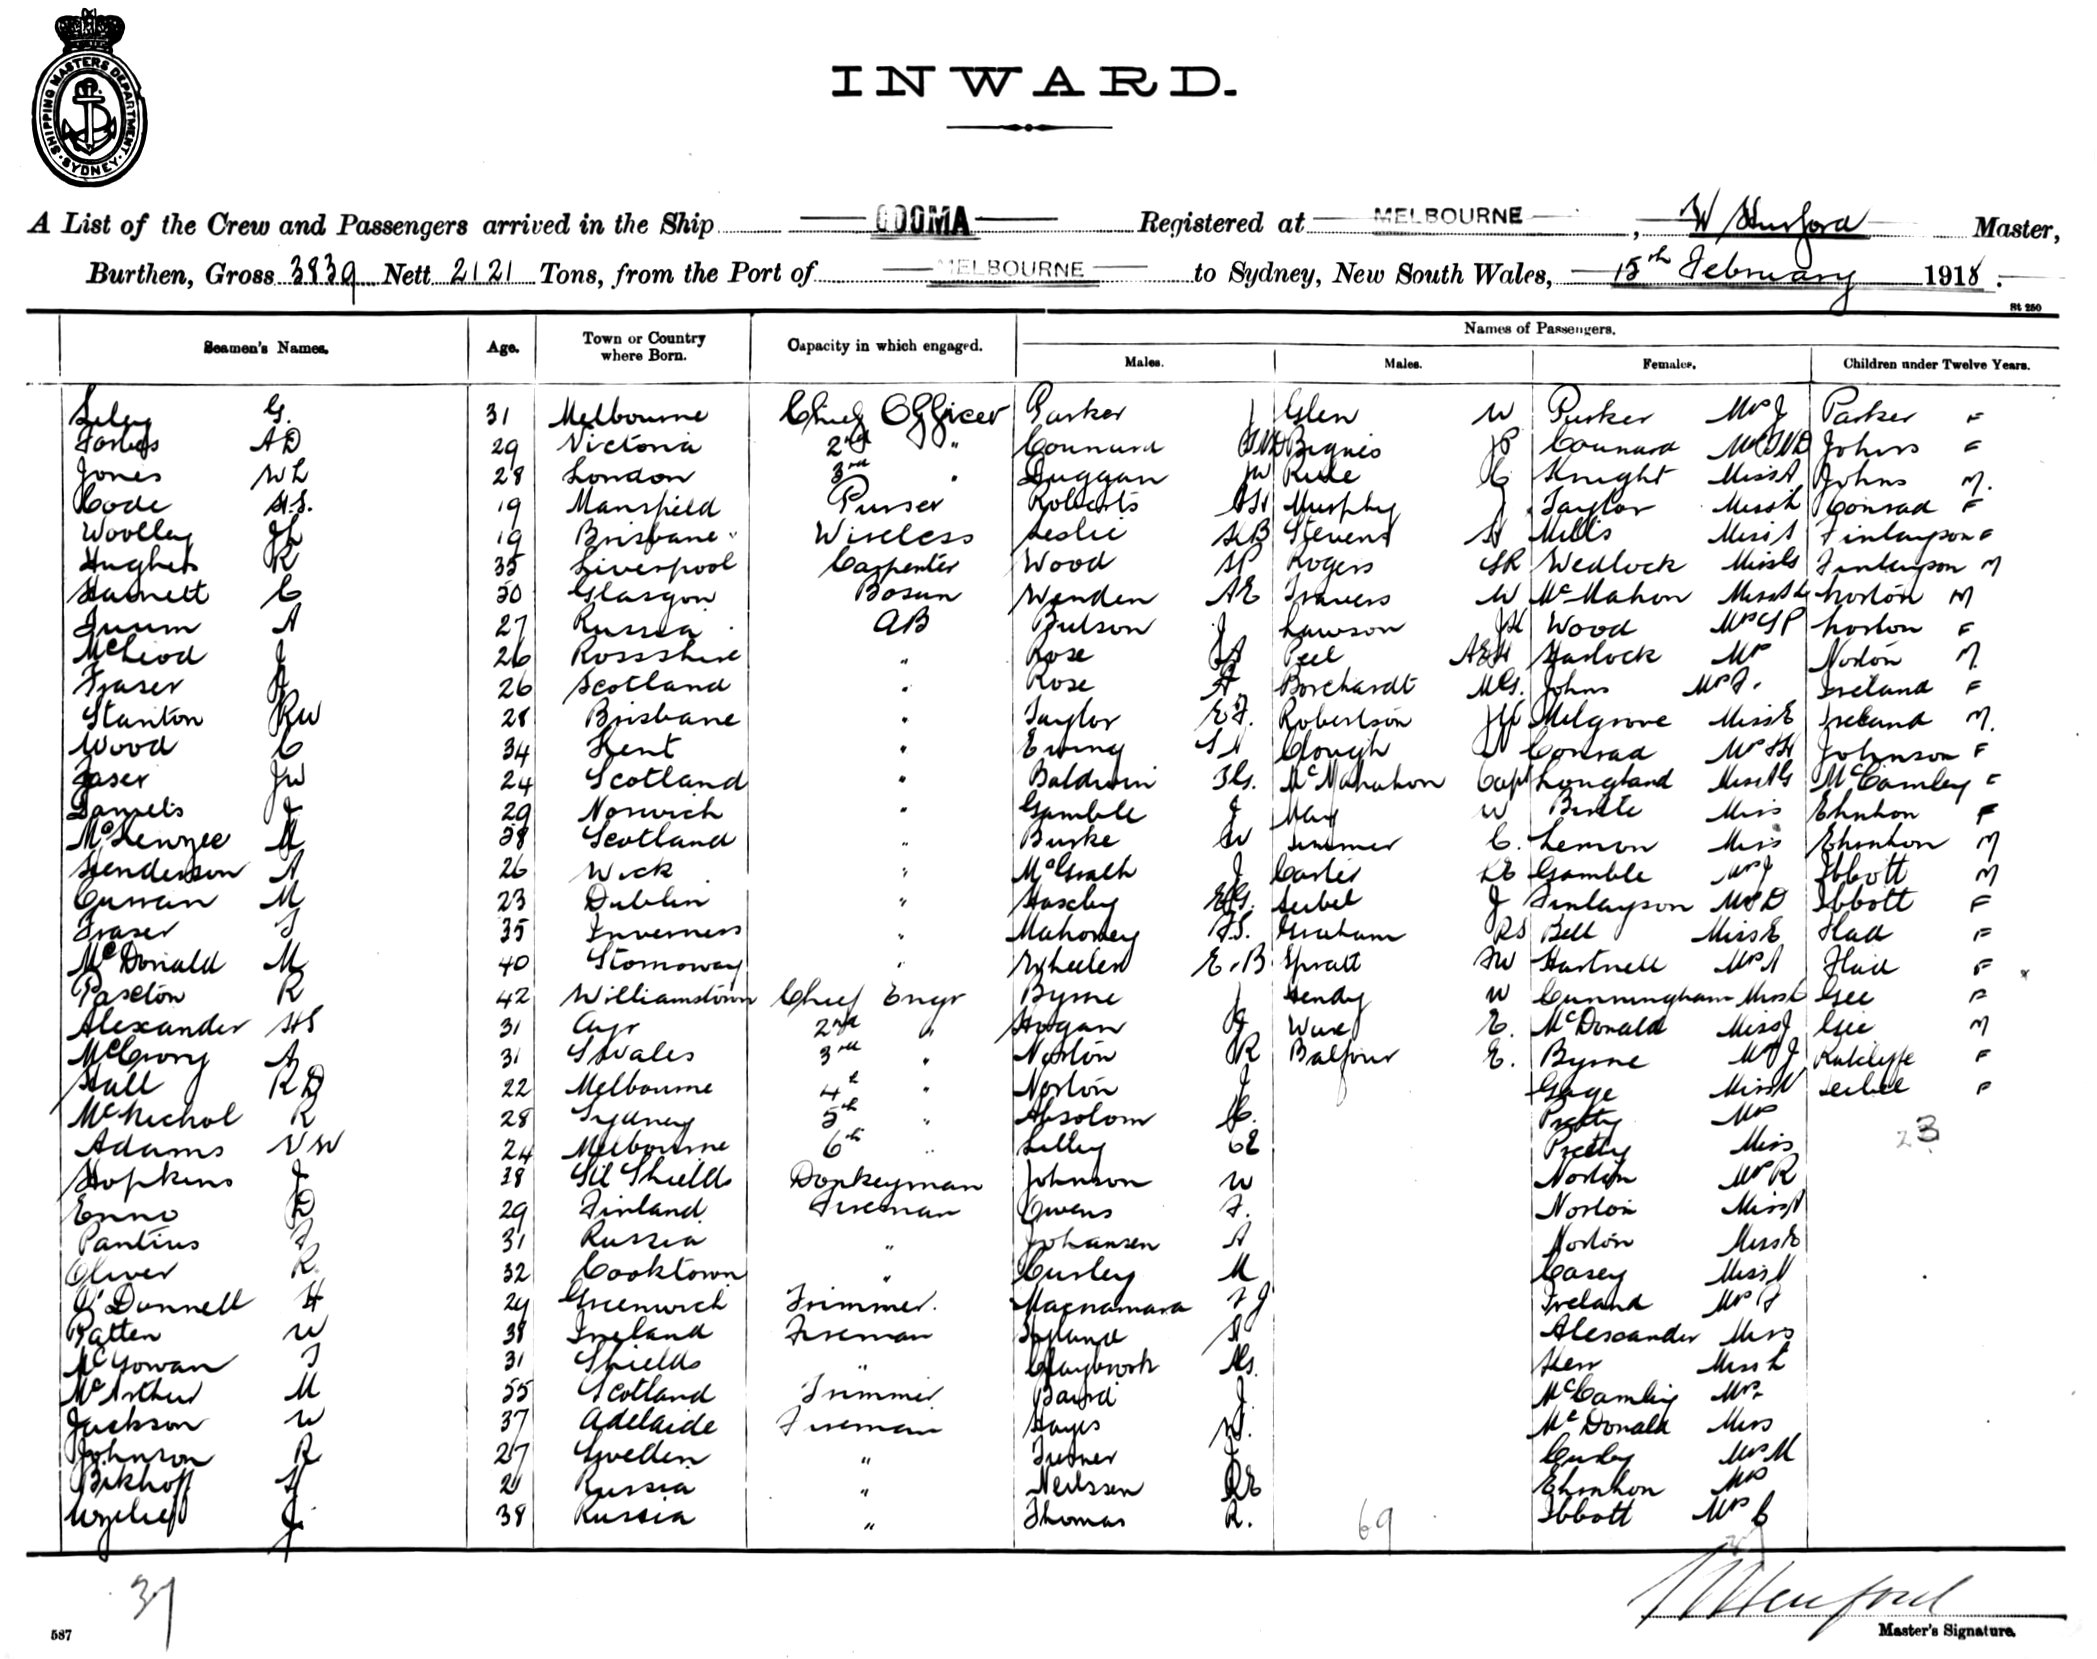 SHIPPING MASTERS DEPARTMENT SYDNEY
INWARD.
A List of the Crew and Passengers arrived in the Ship COOMA Registered at MELBOURNE, W Hurford Master,
Burthen, Gross 3839 Nett 2121 Tons, from the Port of MELBOURNE to Sydney, New South Wales, 15th February 1918.
St 250
Names of Passengers.
Seamen's Names. Age. Town or Country where Born. Capacity in which engaged. Males. Males. Females. Children under Twelve Years.
G. 31 Melbourne Chief Officer Parker J Glen W Parker Mrs J Parker F
Forbes AD 29 Victoria 2nd " Counard Bignis JP Counard Johns F
Jones WL 28 London 3rd " Duggan JW Rule C Knight Miss A Johns M.
Code H.S. 19 Mansfield Purser Roberts Murphy J Taylor Miss L Conrad F
Woolley JL 19 Brisbane Wireless Leslie HB Stevens H Mills Miss A Finlayson F
Hughes R 35 Liverpool Carpenter Wood SP Rogers Wedlock Miss Finlayson M
Hamett C 50 Glasgow Bosun Wenden AE Travers W McMahon Miss Norton M
A 27 Russia AB Bulson J Lawson JH Wood Mrs SP Norton F
McLeod J 26 Rossshire " Rose Peel AEH Harlock Mrs Norton M
Fraser J 26 Scotland " Rose A Borchardt MG. Johns Mrs F. Ireland F
Stanton RW 28 Brisbane " Taylor E.F. Robertson Milgrove Miss E Ireland M.
Wood C 34 Kent " Ewing Clough Conrad Mrs H Johnson F
Faser JW 24 Scotland " Baldwin Capt Longland Miss McCamley F
Daniels J 29 Norwich " Gamble J May W Miss Ehnhon F
McKenzee M 38 Scotland " Burke W C. Lemon Miss Ehnhon M
Henderson A 26 Wick " McGrath J Carter Gamble Mrs J Ibbott M
Curran M 23 Dublin " Seibel J Finlayson Mrs D Ibbott F
Fraser 35 Inverness " Mahoney Graham RS Bell Miss E Flad F
McDonald M 40 Stornoway " Wheelen E.B Spratt FW Hartnell Mrs A Flad F
Paxton R 42 Williamstown Chief Engr Byrne J Hendy W Cunningham Miss Gee F
Alexander HS 31 Ayr 2nd " Hogan J E. McDonald Miss J Gee M
McCrory A 31 S Wales 3rd " Norton R Balfour E. Byrne Mrs J Ratcliffe F
Hall RD 22 Melbourne 4th " Norton J Gage Miss Seibel F
McNichol R 28 Sydney 5th " Absolom C. Pretty Mrs
Adams VW 24 Melbourne 6th " Lilley CE Pretty Miss 23
Hopkins J 38 Sth Shields Donkeyman Johnson W Norton Mrs R
Enno D 29 Finland Fireman Owens F. Norton Miss A
Pantius 31 Russia " Johansen A Norton Miss E
Oliver R. 32 Cooktown " Curley M Casey Miss
O'Donnell H 29 Greenwich Trimmer. Macnamara Ireland Mrs F
Patten W 38 Ireland Fireman Hyland A Alexander Miss
McGowan T 31 Shields " Claybrook Miss L
McArthur M 55 Scotland Trimmer Baird J McCamley Mrs
Jackson W 37 Adelaide Fireman Hayes W. McDonald Miss
Johnson R 27 Sweden " J Curley Mrs M
Bekhoff H 21 Russia " Neilssen Ehnhon Mrs
38 Russia " Thomas R. 69 Ibbott Mrs C
37
W Hurford
Master's Signature.
587